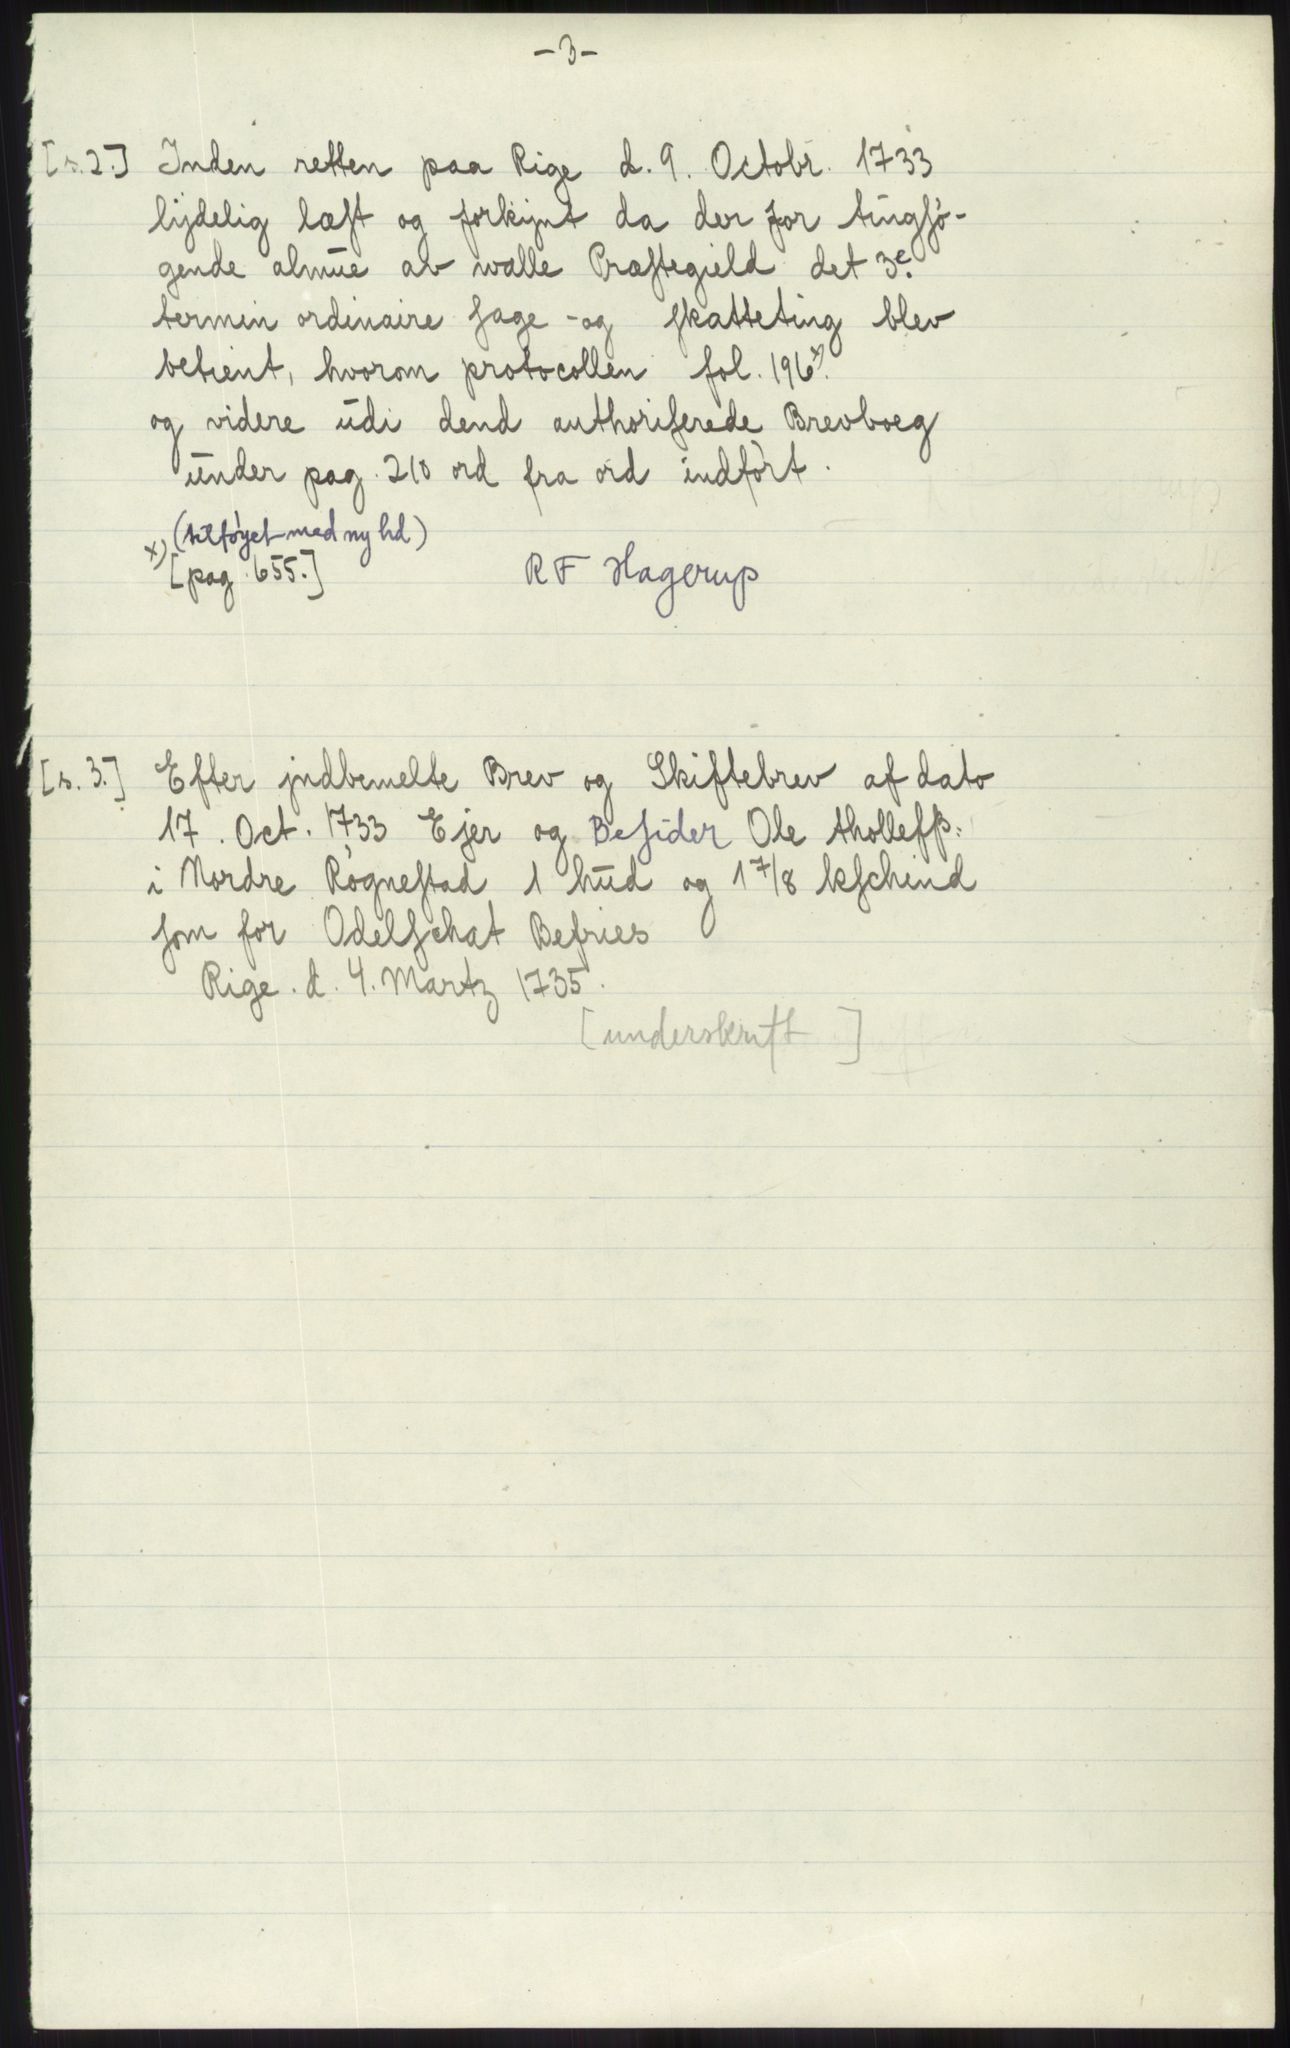 -3-
[s.2.] Inden retten paa Rige d. 9. Octobr. 1733
lijdelig læſt og forkijnt da der for tingſø-
gende almŭe av walle Præſtegield det 3e.
termin ordinaire ſage-og ſkatteting blev
betient, hvorom protocollen fol. 196x).
og videre ŭdi dend authoriſerede Brevboeg
ŭnder pag. 210 ord fra ord indført.
(tilføyet med ny hd)
x) [pag. 655.] RF Hagerup
[s. 3.] Efter jndbemelte Brev og Skiftebrev af dato
17. Oct. 1733 Ejer og Beſider Ole tholleſſß:
i Nordre Røgneſtad 1 hŭd og 1 7/8 kſchind
ſom for Odelſchat Befries
Rige. d. 4. Martz 1735.
[underskrift ]